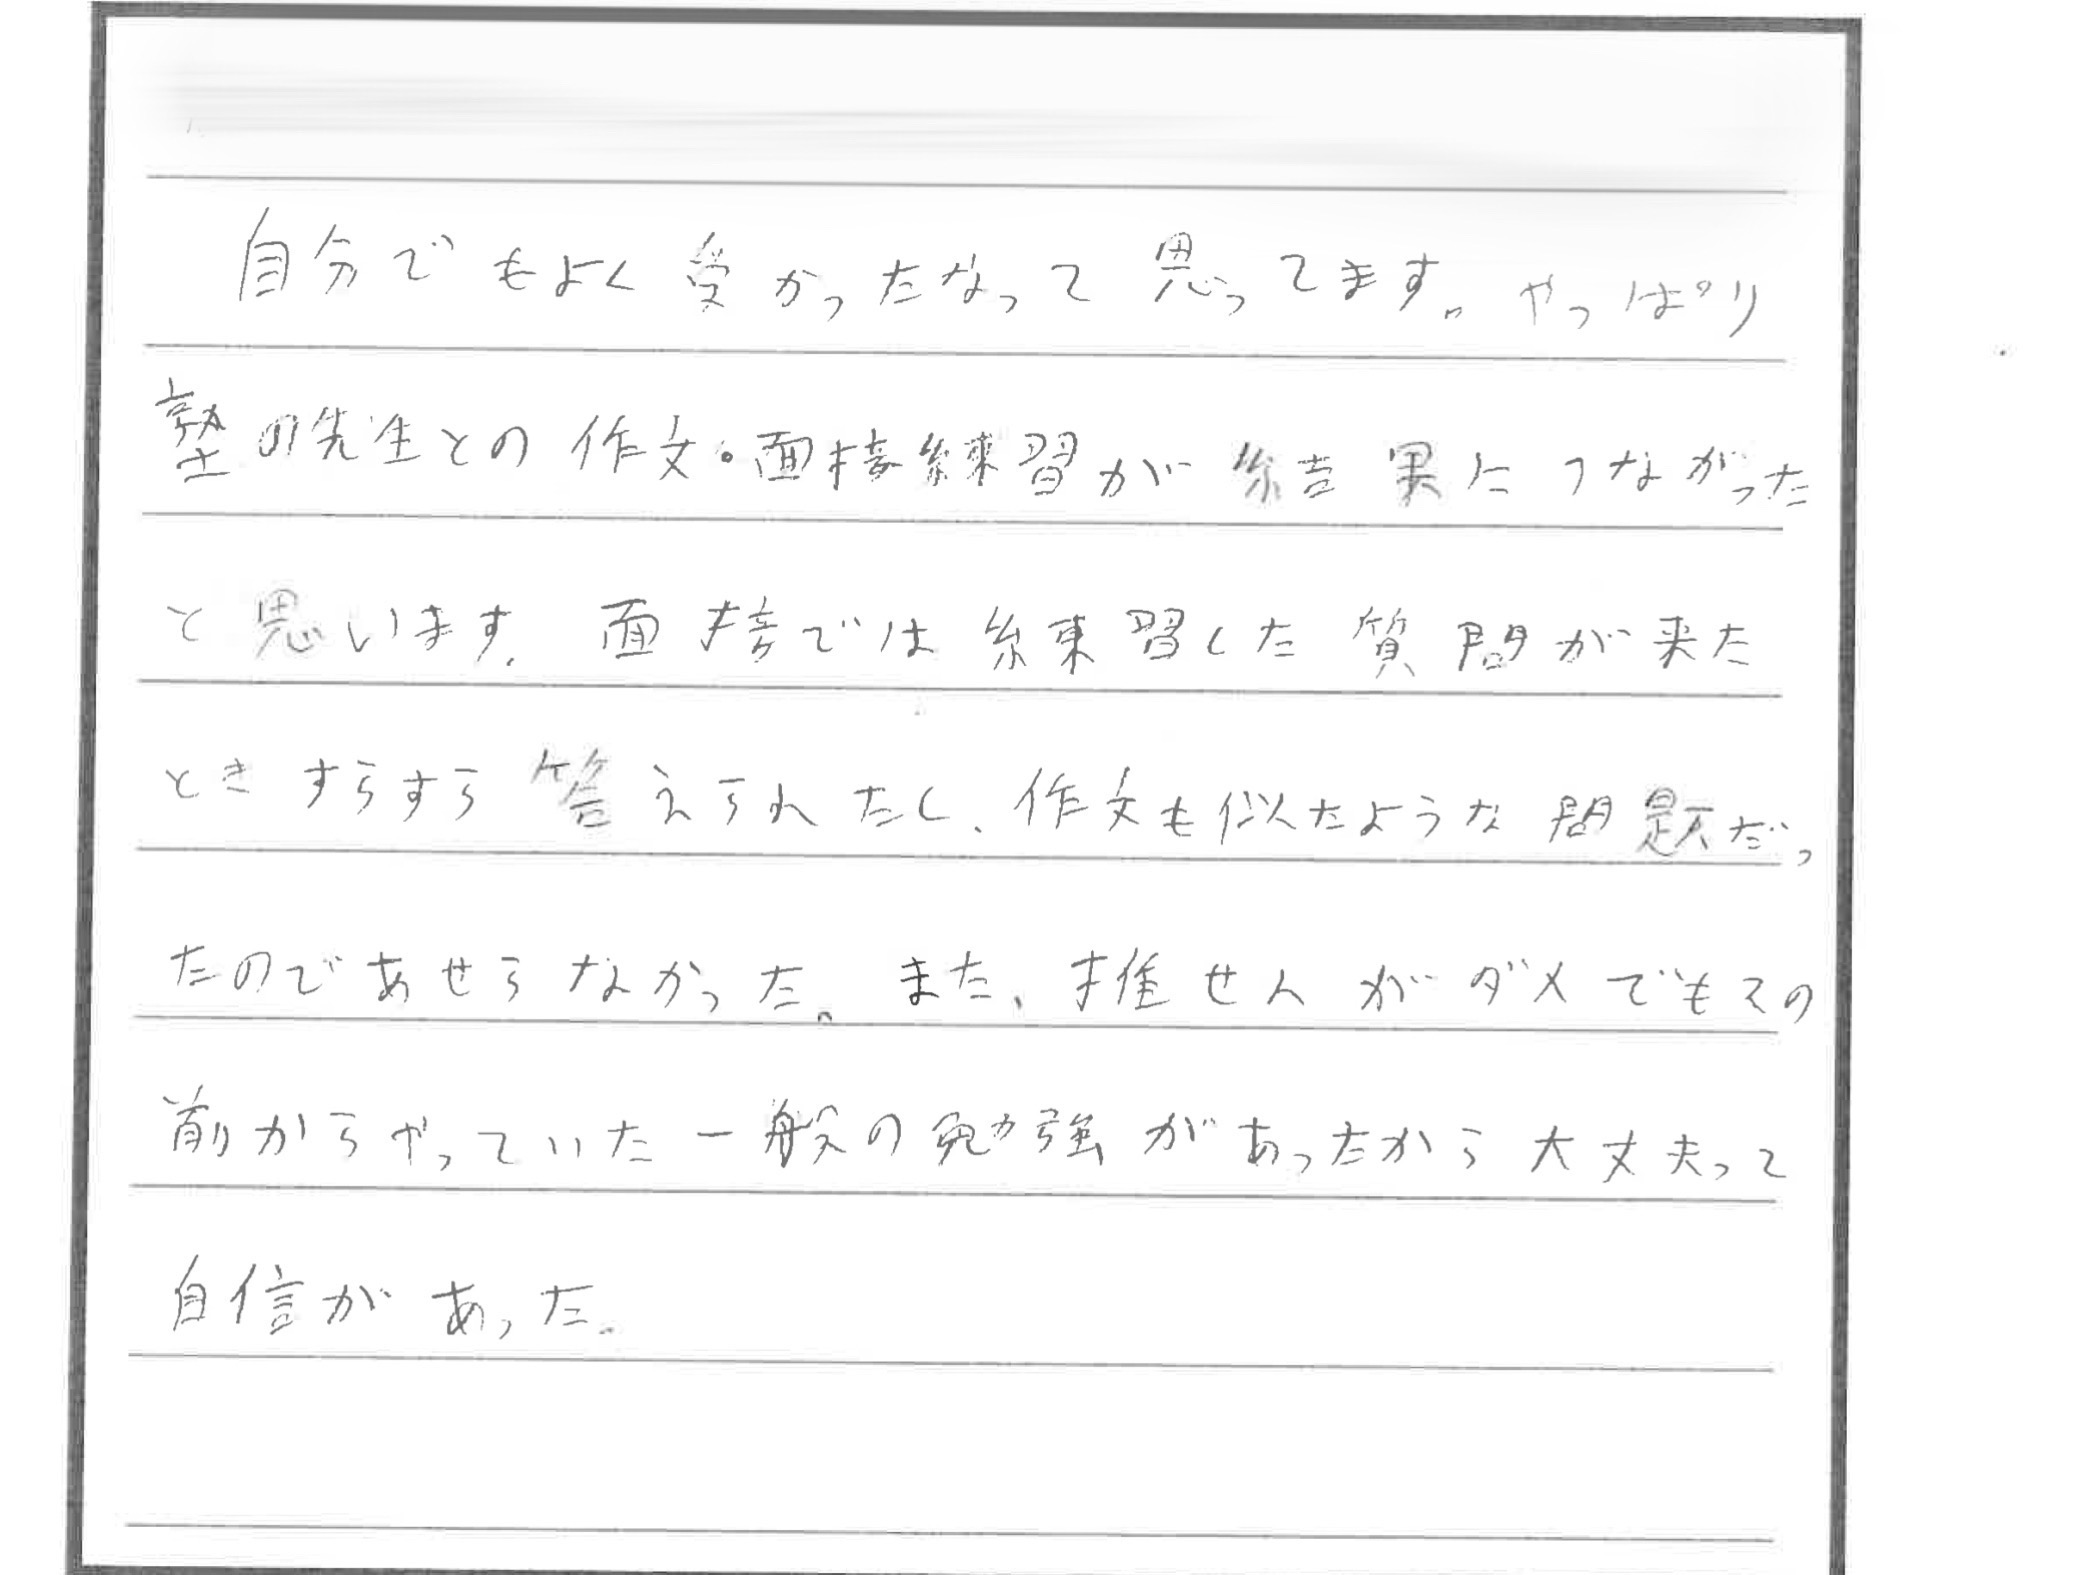 自分でもよく受かったなって思ってます。やっぱり
塾の先生との作文・面接練習が結果につながった
と思います。面接では練習した質問が来た
ときすらすら答えられたし、作文も似たような問題だっ
たのであせらなかった。また、推せんがダメでもその
前からやっていた一般の勉強があったから大丈夫って
自信があった。